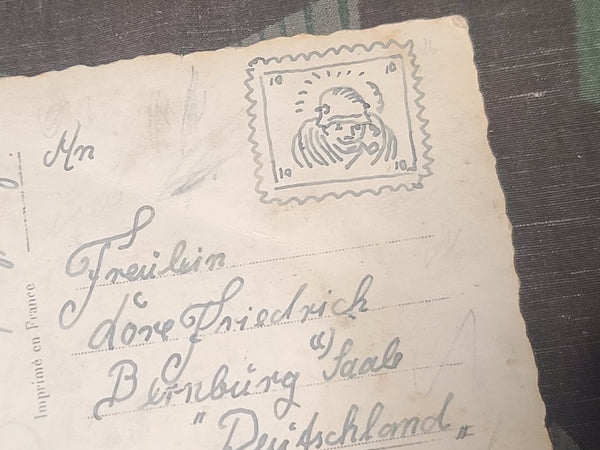 10 10
10 10
An
Fräulein
döre Friedrich
Bernburg a/Saale
"Deutschland"
Imprimé en France